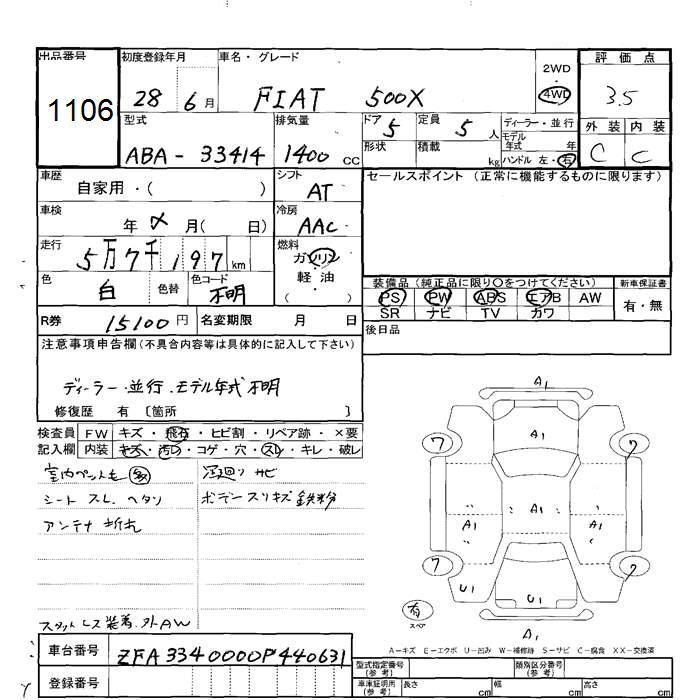 出品番号 初度登録年月 車名・グレード 2WD 評価点
1106 28 6月 FIAT 500X 4WD 3.5
型式 排気量 ドア 5 定員 5人 ディーラー・並行 外装 内装
ABA-33414 1400cc 形状 積載 kg モデル年式 年 C C
ハンドル 左・右
車歴 自家用・( ) シフト AT セールスポイント (正常に機能するものに限ります)
車検 年 月( 日) 冷房 AAC
走行 5万7千197km 燃料 ガソリン
軽油
( )
色 白 色替 色コード 不明 装備品(純正品に限り○をつけてください) 新車保証書
PS PW ABS エアB AW 有・無
R券 15100円 名変期限 月 日 SR ナビ TV カワ
注意事項申告欄(不具合内容等は具体的に記入して下さい) 後日品
ディーラー・並行.モデル年式不明
修復歴 有 〔箇所 〕
検査員 FW キズ・飛石・ヒビ割・リペア跡・×要
記入欄 内装 キズ・汚れ・コゲ・穴・スレ・キレ・破レ
室内ペット毛 多 下廻りサビ
シート スレ ヘタリ ボデースリキズ 鉄粉
アンテナ 折れ
スタットレス装着.外AW
A1
7 A1 7
A1 A1 A1
7 7
U1 U1
有 スペア A1
A=キズ E=エクボ U=凹み W=補修跡 S=サビ C=腐食 XX=交換済
車台番号 ZFA3340000P440631 型式指定番号(参考) 類別区分番号(参考)
登録番号 車庫証明用(参考) 長さ cm 幅 cm 高さ cm